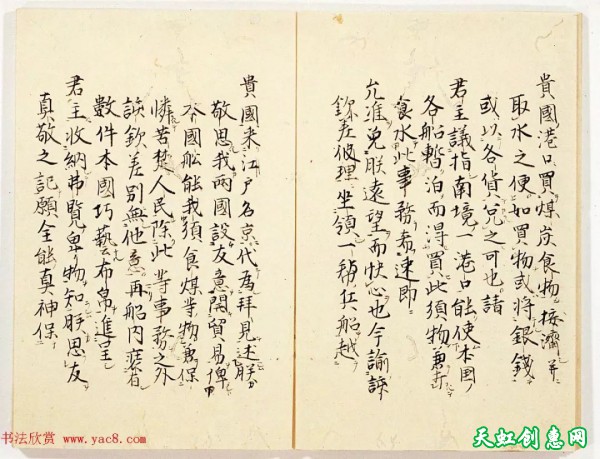 貴國港口買煤炭食物接濟并
取水之便如買物或將銀錢
或以各貨兌之可也諸
君主議指南境一港口能使本國
各船暫泊而得買此須物兼
食水此事務希速即
允准免朕遠望而快心也今諭諒
欽差彼理坐領一幇兵船越
貴國來江戶名京代為拜見述朕
敬思我兩國設友意開貿易俾
本國船能我須食煤等物兼保
憐苦楚人民除此等事務之外
諒欽差別無他意再船內
數件本國巧藝布帛進呈
君主收納弗覽卑物知朕思友
真敬之記願全能真神保
书法欣赏 www.yac8.com
天虹创意网